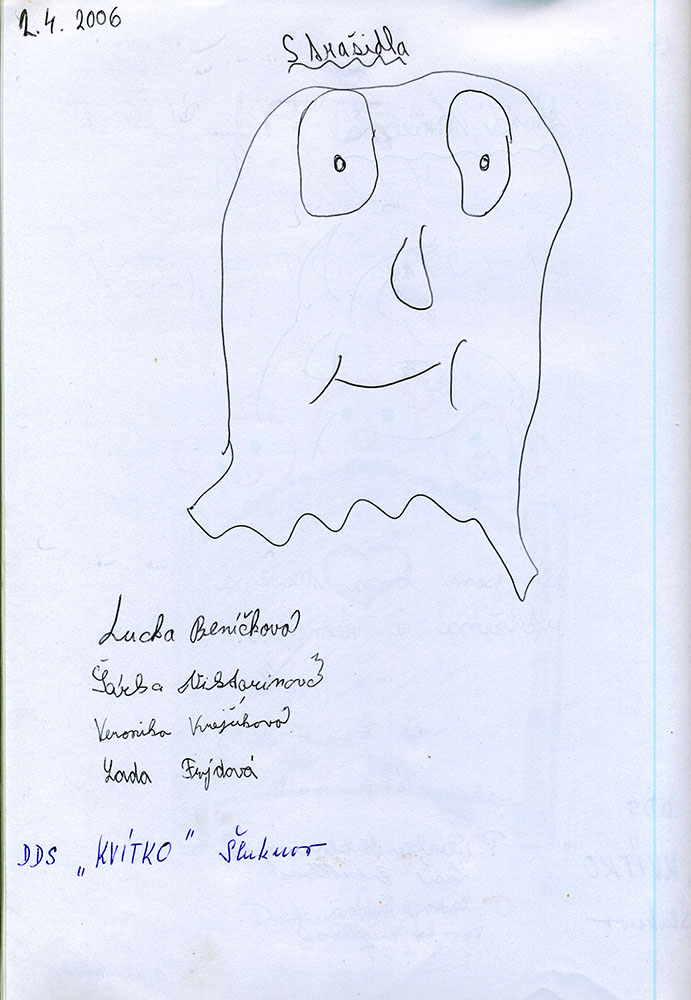 2.4. 2006
Strašidla
Lucka Beníčková
Šárka Viktorinová
Veronika Krejčíková
Lada Frýdová
DDS „KVÍTKO" Šluknov